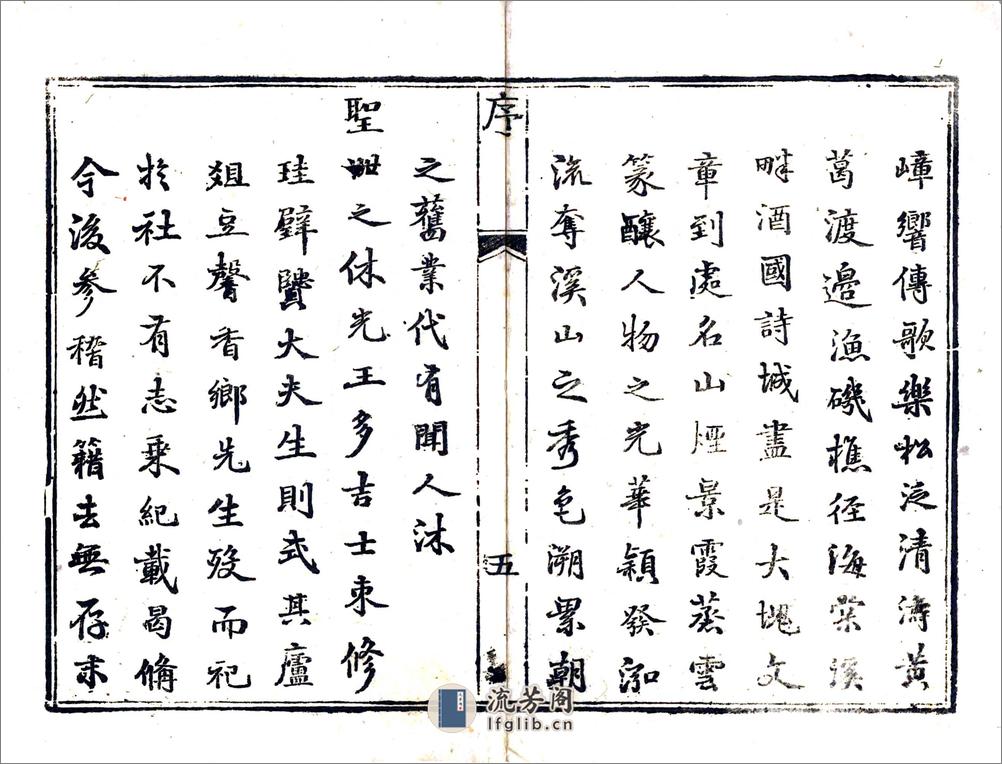 嶂響傳歌樂松泛清濤黃
葛渡邊漁磯樵徑海棠溪
畔酒國詩城盡是大塊文
章到處名山煙景霞蒸雲
篆釀人物之光華穎發泓
流奪溪山之秀色溯累朝
序
五
之舊業代有聞人沐
聖世之休光王多吉士束修
珪璧賢大夫生則式其廬
俎豆馨香鄉先生歿而祀
於社不有志乘紀載曷備
今後參稽然籍去無存未
流芳阁
lfglib.cn